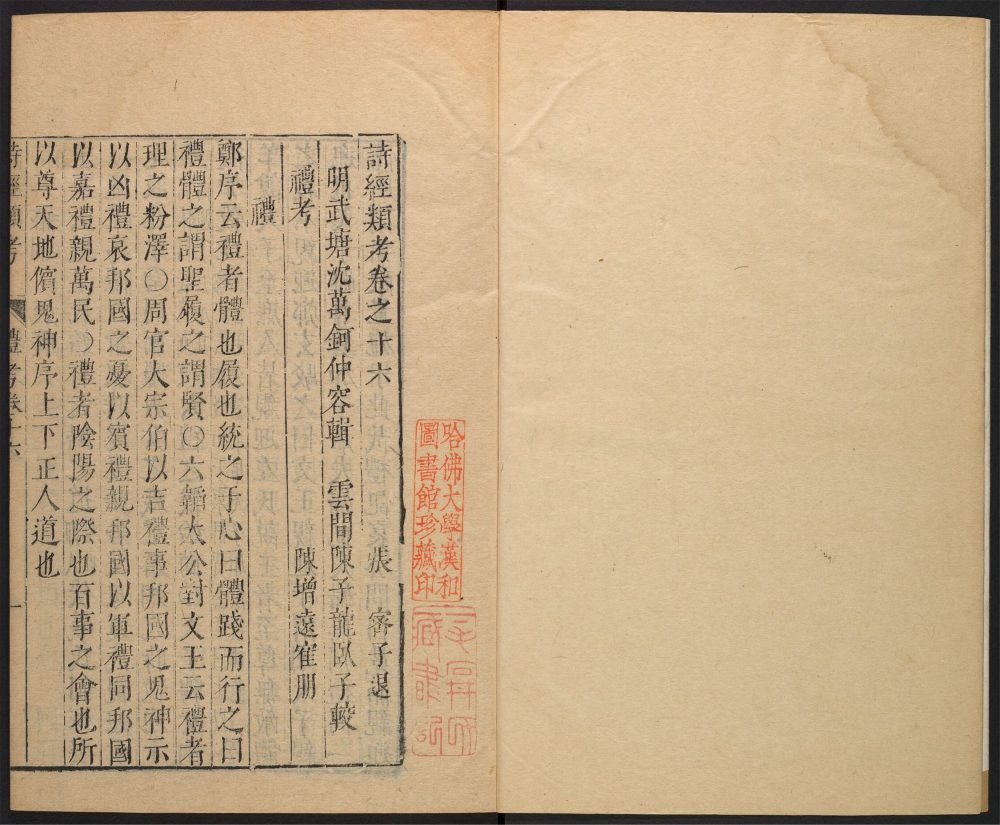 詩經類考卷之十六
張 密子退
明武塘沈萬鈳仲容輯 雲間陳子龍臥子較
陳增遠寉朋
禮考
禮
鄭序云禮者體也履也統之于心曰體踐而行之曰
禮體之謂聖履之謂賢〇六韜太公對文王云禮者
理之粉澤〇周官大宗伯以吉禮事邦國之鬼神示
以凶禮哀邦國之憂以賓禮親邦國以軍禮同邦國
以嘉禮親萬民〇禮者陰陽之際也百事之會也所
以尊天地儐鬼神序上下正人道也
詩經類考 禮考卷十六 一
哈佛大學漢和
圖書館珍藏印
藏書記